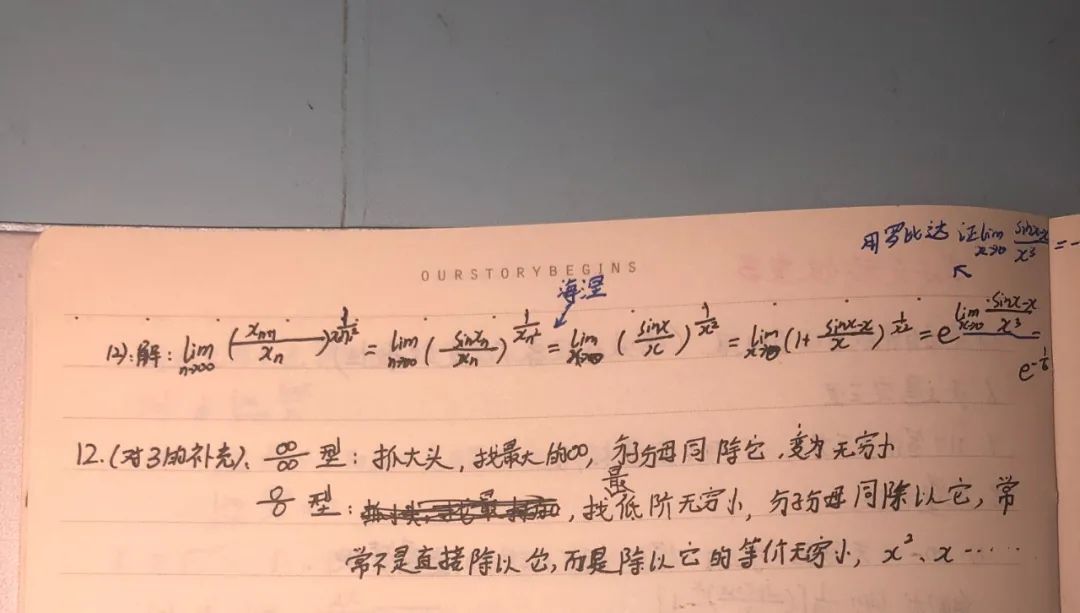 用罗比达 证lim x→0 (sinx-x)/x³ = -
OURSTORYBEGINS
海涅
(2):解: lim n→∞ (xₙ₊₁/xₙ)^(1/xₙ²) = lim n→∞ (sinxₙ/xₙ)^(1/xₙ²) = lim x→0 (sinx/x)^(1/x²) = lim x→0 (1+(sinx-x)/x)^(1/x²) = e^(lim x→0 (sinx-x)/x³) =
e^(-1/6)
12.(对3的补充)、∞/∞ 型: 抓大头, 找最大的∞, 分子分母同除它, 变为无穷小
0/0 型: 找最低阶无穷小, 分子分母同除以它, 常
常不是直接除以它, 而是除以它的等价无穷小, x²、x ……